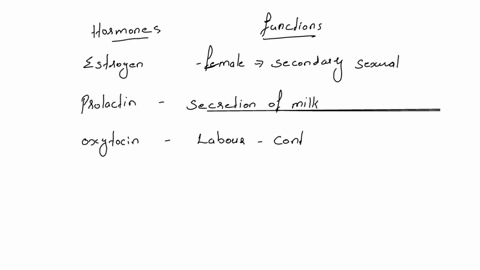 Hormones functions
Estrogen - female → secondary sexual
Prolactin - secretion of milk
Oxytocin - Labour - Cont